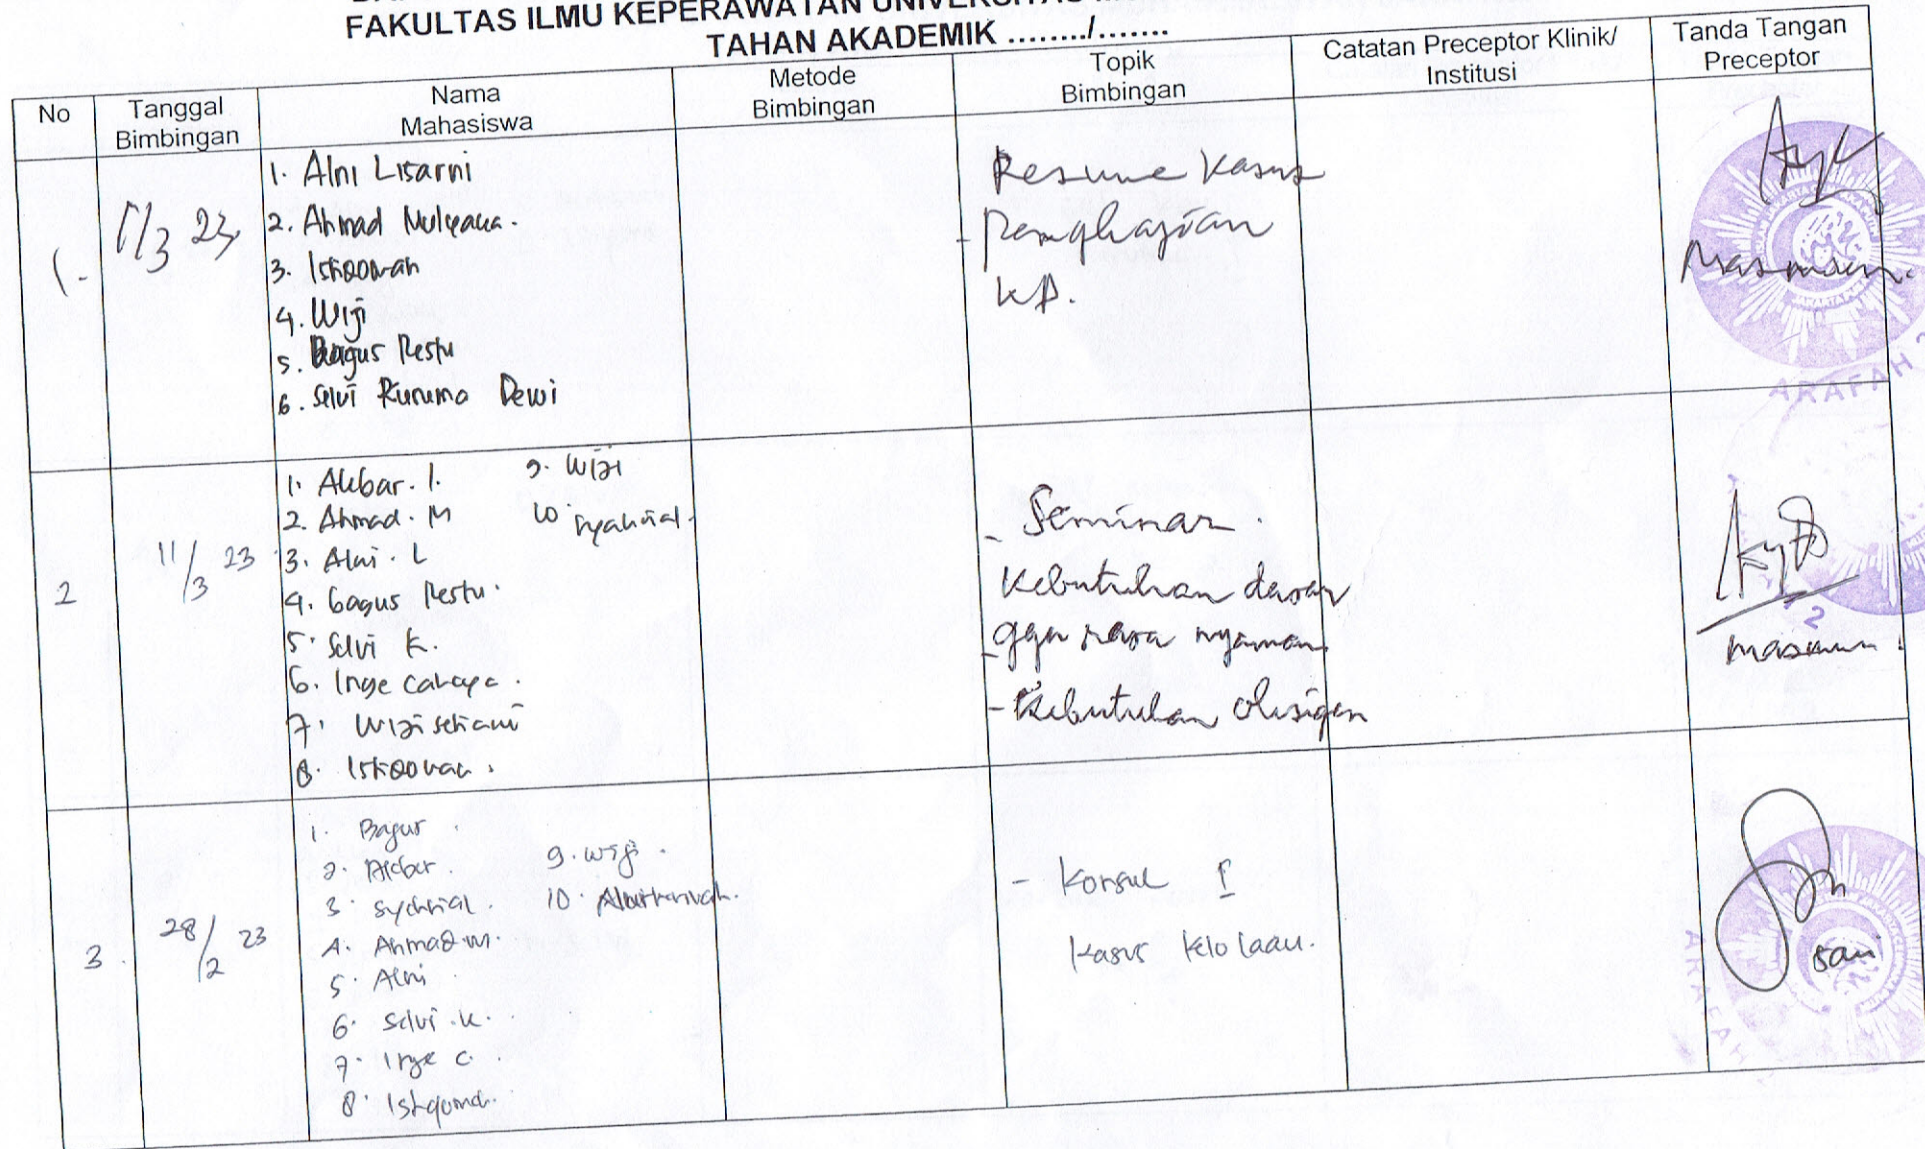 FAKULTAS ILMU KEPERAWATAN UNIVERSITAS
TAHAN AKADEMIK ......../.......
No
Tanggal
Bimbingan
Nama
Mahasiswa
Metode
Bimbingan
Topik
Bimbingan
Catatan Preceptor Klinik/
Institusi
Tanda Tangan
Preceptor
1. Alni Lisarni
2. Ahmad Mulyana.
3. Istiqowah
4. Wiji
5. Bagus Restu
6. Selvi Kusuma Dewi
Resume Kasus
- Pengkajian
KD.
ARAFAH
2
11/3 23
1. Akbar. I.
2. Ahmad. M
3. Alni. L
4. Bagus Restu.
5. Selvi K.
6. Inge Cahaya.
7. Wiji setiani
8. Istiqowah.
9. Wiji
10. Syahrial.
- Seminar.
Kebutuhan dasar
- ggn rasa nyaman
- Kebutuhan Oksigen
2
3.
28/2 23
1. Bagus
2. Akbar.
3. Syahrial.
4. Ahmad M.
5. Alni
6. Selvi. K.
7. Inge C.
8. Istiqoma.
9. Wiji.
- Konsul I
Kasus Kelolaan.
sari
ARAFAH